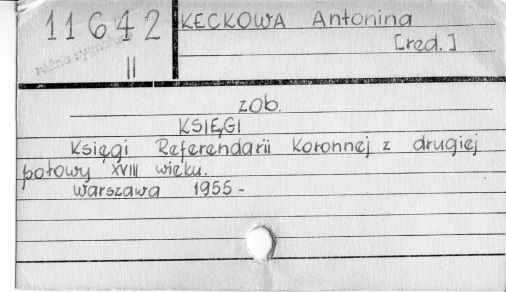 11642
II
KECKOWA Antonina
[red.]
zob.
KSIĘGI
Księgi Referendarii Koronnej z drugiej
połowy XVIII wieku.
Warszawa 1955-